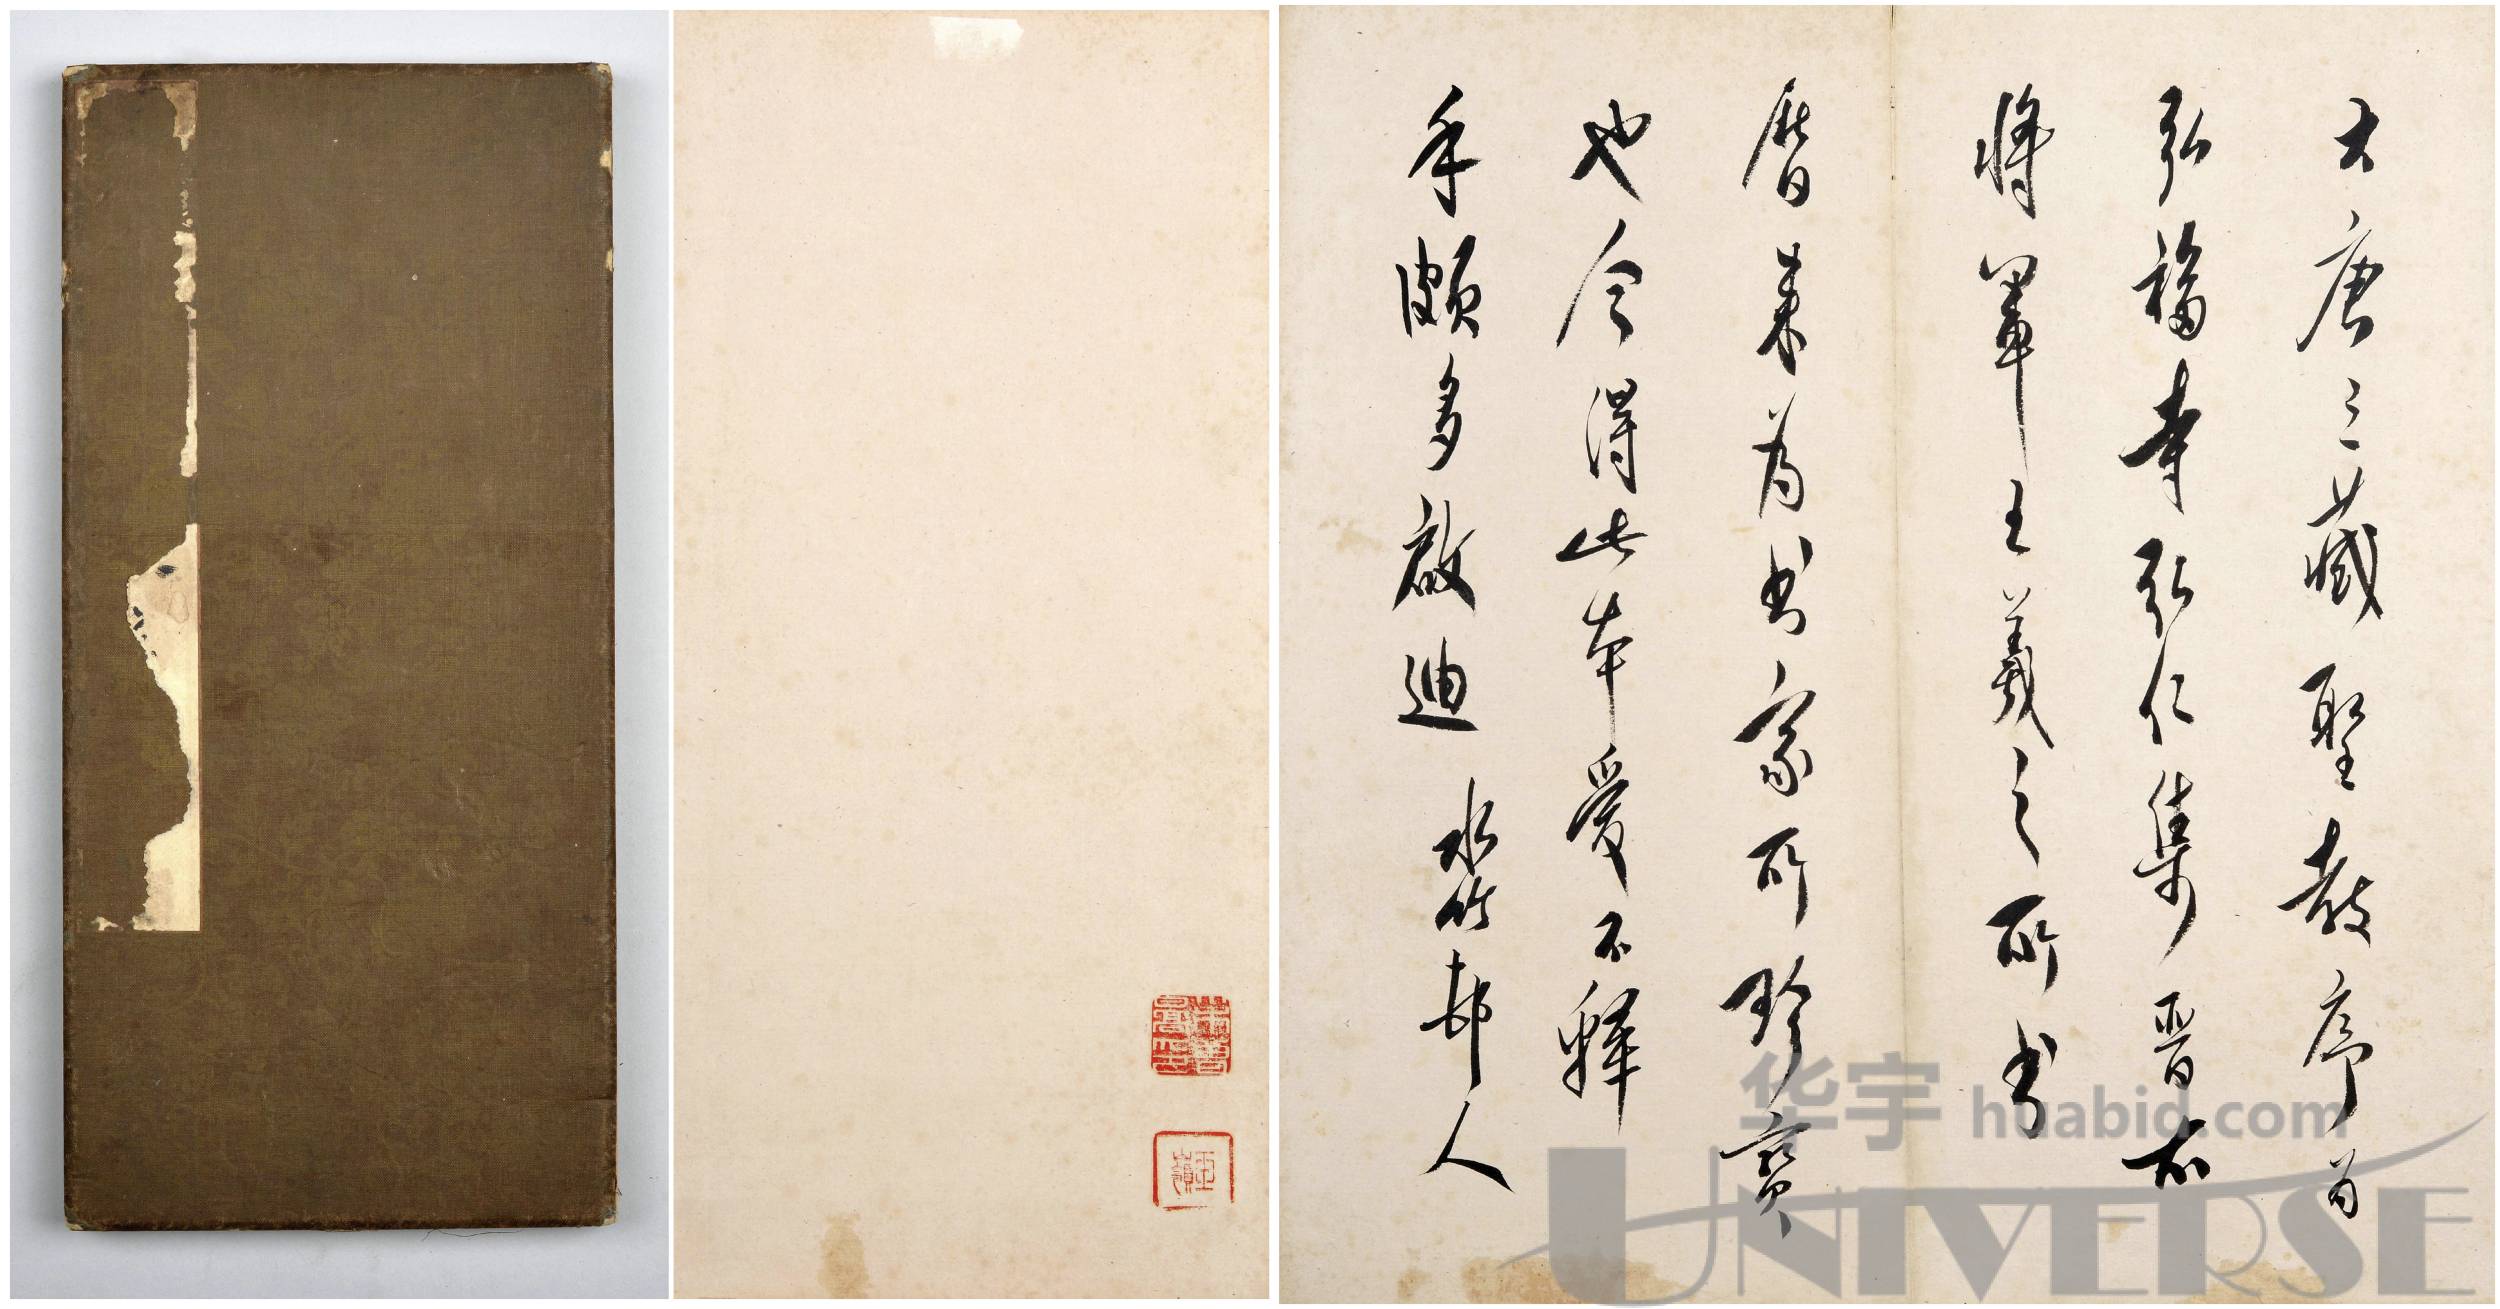 大唐三藏聖教序为
弘福寺弘仁集晋右
将軍王羲之所书
曆来为书家所珍寶
也今得此本爱不釋
手頗多啟迪 水竹邨人
华宇 huabid.com
UNIVERSE